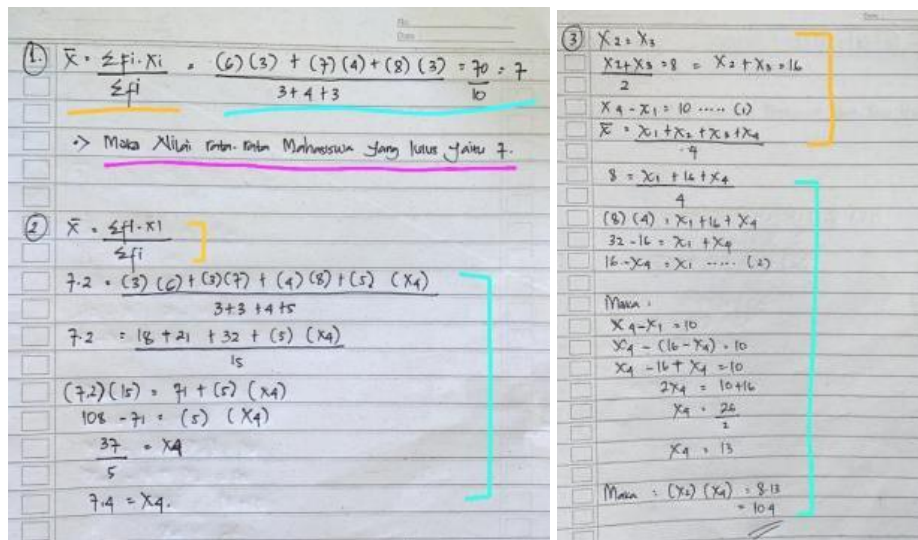 No.
Date
1. x̄ = Σfi.xi / Σfi = (6)(3) + (7)(4) + (8)(3) / 3+4+3 = 70 / 10 = 7
•> Maka Nilai rata-rata Mahasiswa yang lulus yaitu 7.
2 x̄ = Σfi.xi / Σfi
7.2 = (3)(6) + (3)(7) + (4)(8) + (5) (x4) / 3+3+4+5
7.2 = 18 + 21 + 32 + (5) (x4) / 15
(7.2)(15) = 71 + (5) (x4)
108 - 71 = (5) (x4)
37 / 5 = x4
7.4 = x4.
3 x2 = x3
x2+x3 / 2 = 8 = x2 + x3 = 16
x4 - x1 = 10 ..... (1)
x̄ = x1 + x2 + x3 + x4 / 4
8 = x1 + 16 + x4 / 4
(8)(4) = x1 + 16 + x4
32 - 16 = x1 + x4
16 - x4 = x1 ..... (2)
Maka :
x4 - x1 = 10
x4 - (16 - x4) = 10
x4 - 16 + x4 = 10
2x4 = 10+16
x4 = 26 / 2
x4 = 13
Maka : (x2) (x4) = 8.13
= 104